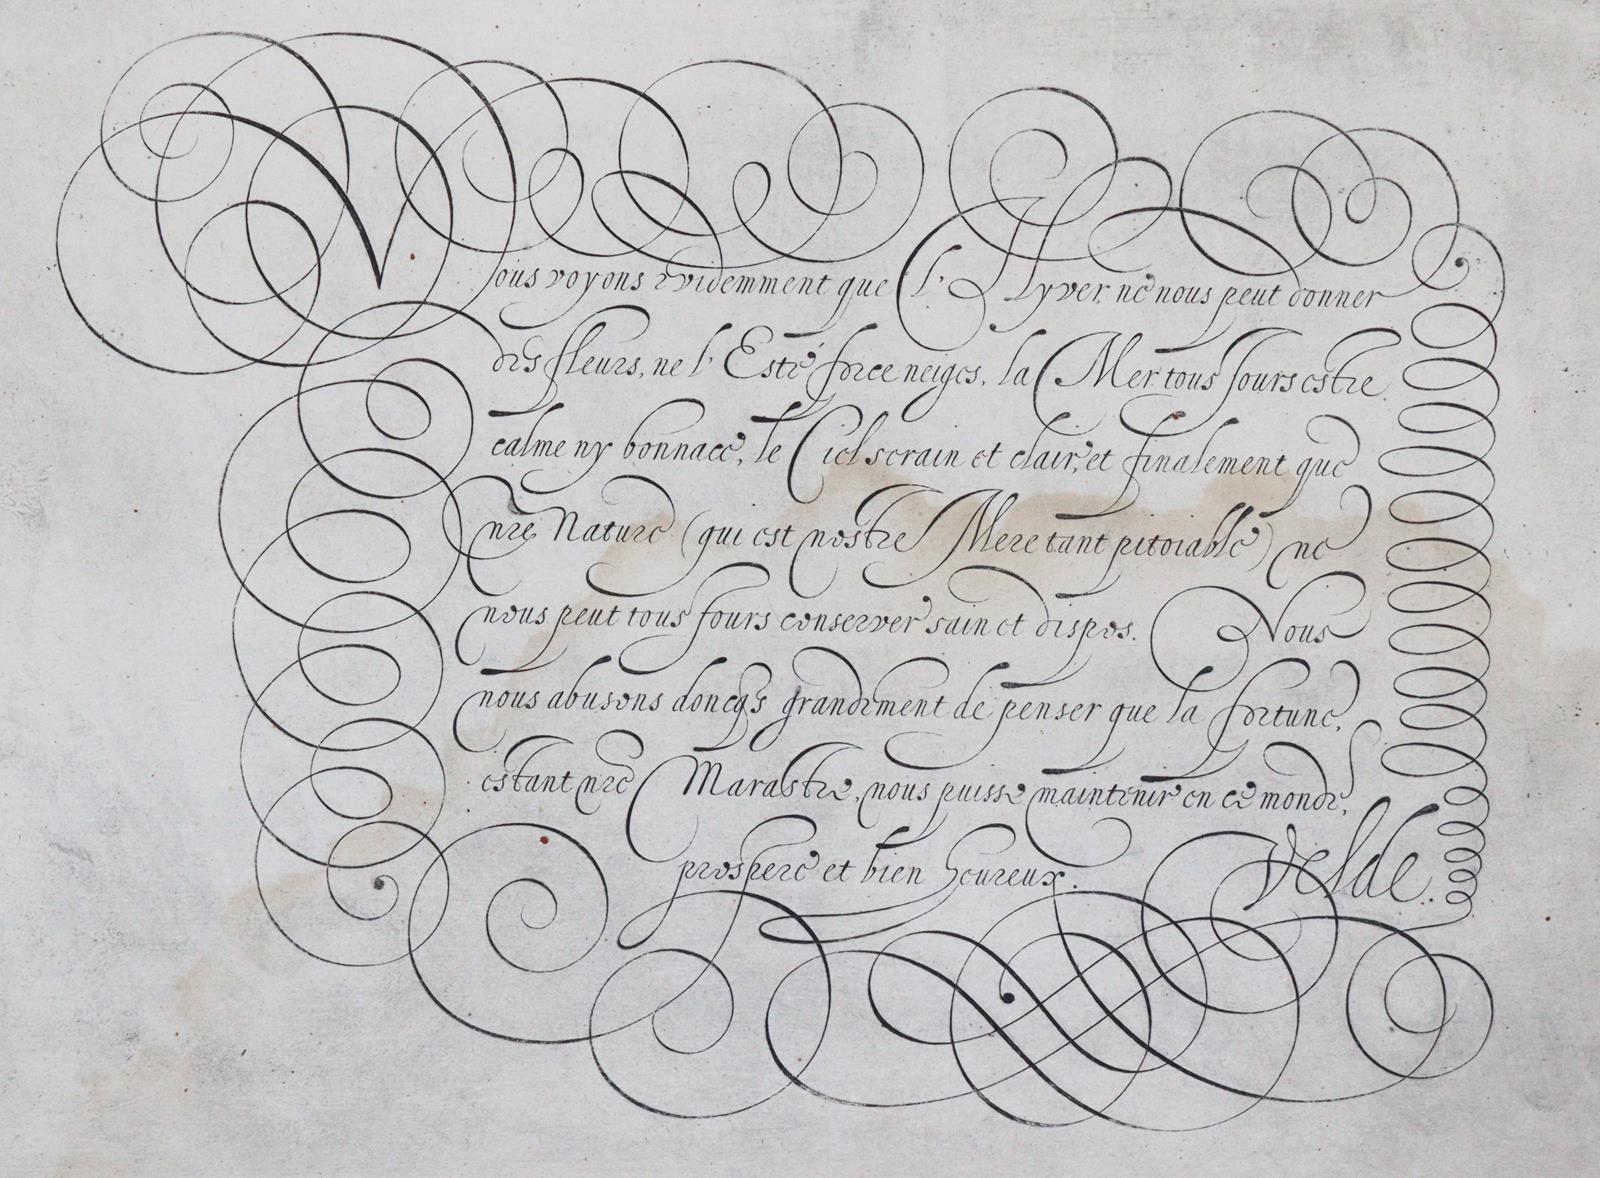 Nous voyons evidemment que l'Hyver ne nous peut donner
des fleurs, ne l'Esté force neiges, la Mer tous Jours estre
calme ny bonnace, le Ciel serain et clair, et finalement que
nre Nature (qui est nostre Mere tant pitoiable) ne
nous peut tous Jours conserver sain et dispos. Nous
nous abusons doncqs grandement de penser que la fortune,
estant nre Marastre, nous puisse maintenir en ce monde,
prospere et bien heureux. Velde.